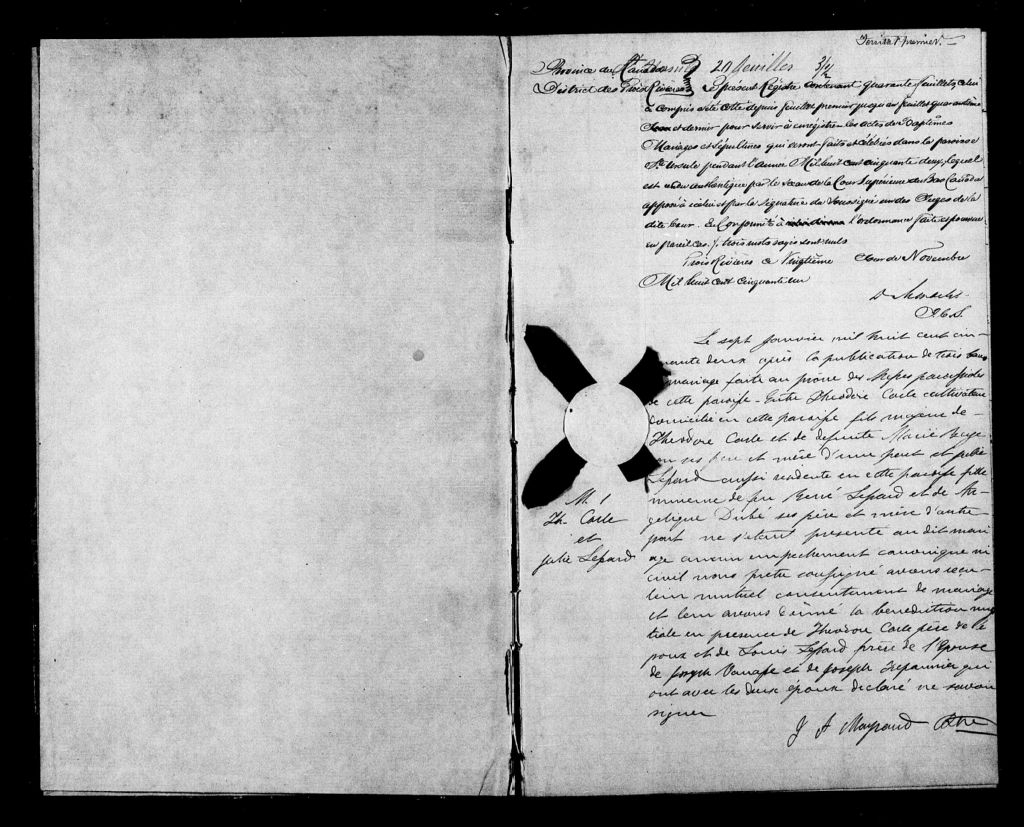 feuillet premier.
Province du Canada 20 feuilles
District des Trois Rivières Le présent Registre contenant quarante feuillets, celui
à compris est coté depuis feuillet premier jusqu'au feuillet quarantième
et dernier pour servir à enregistrer les actes de Baptêmes
Mariages et Sépultures qui seront faits et célébrés dans la paroisse
Ste Ursule pendant l'Année Mil huit cent cinquante deux, lequel
est rendu authentique par le sceau de la Cour Supérieure du Bas Canada
apposé à icelui et par la signature du Soussigné un des Juges de la
dite Cour. En Conformité à l'ordonnance faite et pourvue
en pareil cas. trois mots rayés sont nuls
Trois Rivières ce Vingtième Jour de Novembre
Mil huit cent cinquante un
D
P.C.S.
Le sept janvier mil huit cent cin-
quante deux après la publication de trois bans
de mariage faite au prône des Messes paroissiales
de cette paroisse - Entre Théodore Carle cultivateur
domicilié en cette paroisse fils majeur de
Théodore Carle et de defunte Marie
ses père et mère d'une part et Julie
Lepard aussi résidente en cette paroisse fille
mineure de feu René Lepard et de An-
gelique Dubé ses père et mère d'autre
part ne s'étant présenté au dit mari
age aucun empechement canonique ni
civil nous prêtre soussigné avons reçu
leur mutuel consentement de mariage
et leur avons donné la bénédiction nup
tiale en presence de Théodore Carle père de l'é
poux et de Louis Lepard frère de l'Epouse
de Joseph Vanasse et de Joseph Trepannier qui
ont avec les deux époux declaré ne savoir
signer
J A Mayrand Ptre
M 1
Th- Carle
et
Julie Lepard